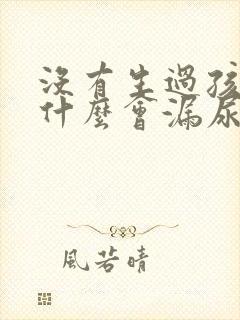 沒有生過孩
什麼會漏尿
風若晴